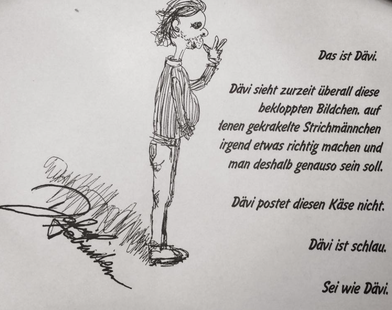 Das ist Dävi.
Dävi sieht zurzeit überall diese
bekloppten Bildchen. auf
denen gekrakelte Strichmännchen
irgend etwas richtig machen und
man deshalb genauso sein soll.
Dävi postet diesen Käse nicht.
Dävi ist schlau.
Sei wie Dävi.